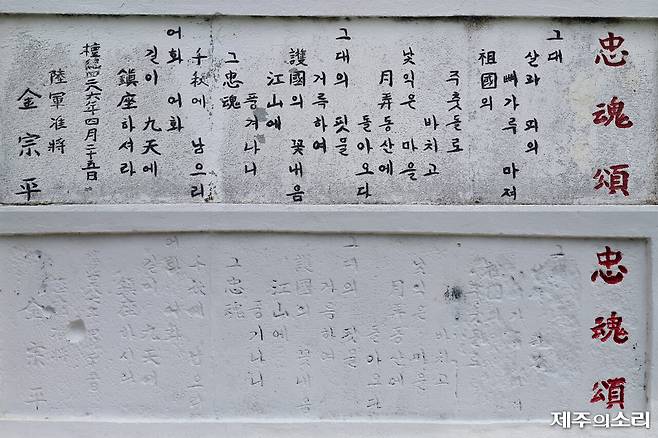 忠魂頌
그대
살과 피의
뼈가루 마저
祖國의
주춧돌로
바치고
낯익은 마을
月弄동산에
돌아오다
그대의 핏물
거룩하여
護國의 꽃내음
江山에
풍겨나니
그 忠魂
千秋에 남으리
어화 어화
길이 九天에
鎭座하셔라
檀紀四二八六年四月二十五日
陸軍准將
金宗平
忠魂頌
그
바치고
낯익은 마을
月弄동산에
돌아오다
그대의 핏물
거룩하여
護國의 꽃내음
江山에
그 忠魂
남으리
어화
길이 九天에
金宗平
제주의소리